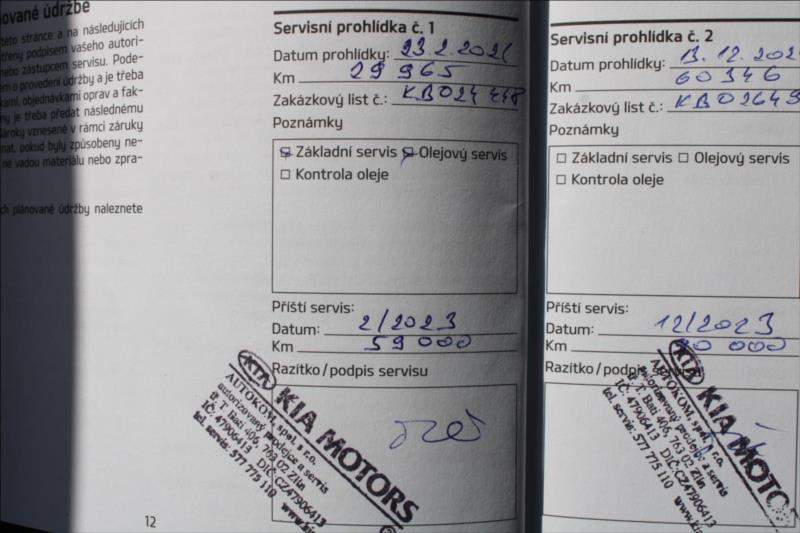 ované údržbe
této stránce a na následujících
třeny podpisem vašeho autori-
nebo zástupcem servisu. Pode-
em o provedení údržby a je třeba
kami, objednávkami oprav a fak-
ny je třeba předat následnému
Nároky vznesené v rámci záruky
nat, pokud byly způsobeny ne-
ne vadou materiálu nebo zpra-
ch plánované údržby naleznete
12
Servisní prohlídka č. 1
Datum prohlídky: 23.2.2021
Km 29 965
Zakázkový list č.: KB024 448
Poznámky
Základní servis Olejový servis
Kontrola oleje
Příští servis:
Datum: 2/2023
Km 59 000
Razítko/podpis servisu
KIA KIA MOTORS
AUTOKOM, spol. s r.o.
autorizovaný prodejce a servis
tř. T. Bati 406, 763 02 Zlín
IČ: 47906413 DIČ:CZ47906413
tel. servis: 577 775 110 www.ki
Servisní prohlídka č. 2
Datum prohlídky: 13.12.202
Km 60 346
Zakázkový list č.: KB02649
Poznámky
Základní servis Olejový servis
Kontrola oleje
Příští servis:
Datum: 12/2023
Km 90 000
Razítko/podpis servisu
KIA KIA MOTO
AUTOKOM, spol. s r.o.
autorizovaný prodejce a servis
tř. T. Bati 406, 763 02 Zlín
IČ: 47906413 DIČ:CZ47906413
tel. servis: 577 775 110 www.ki